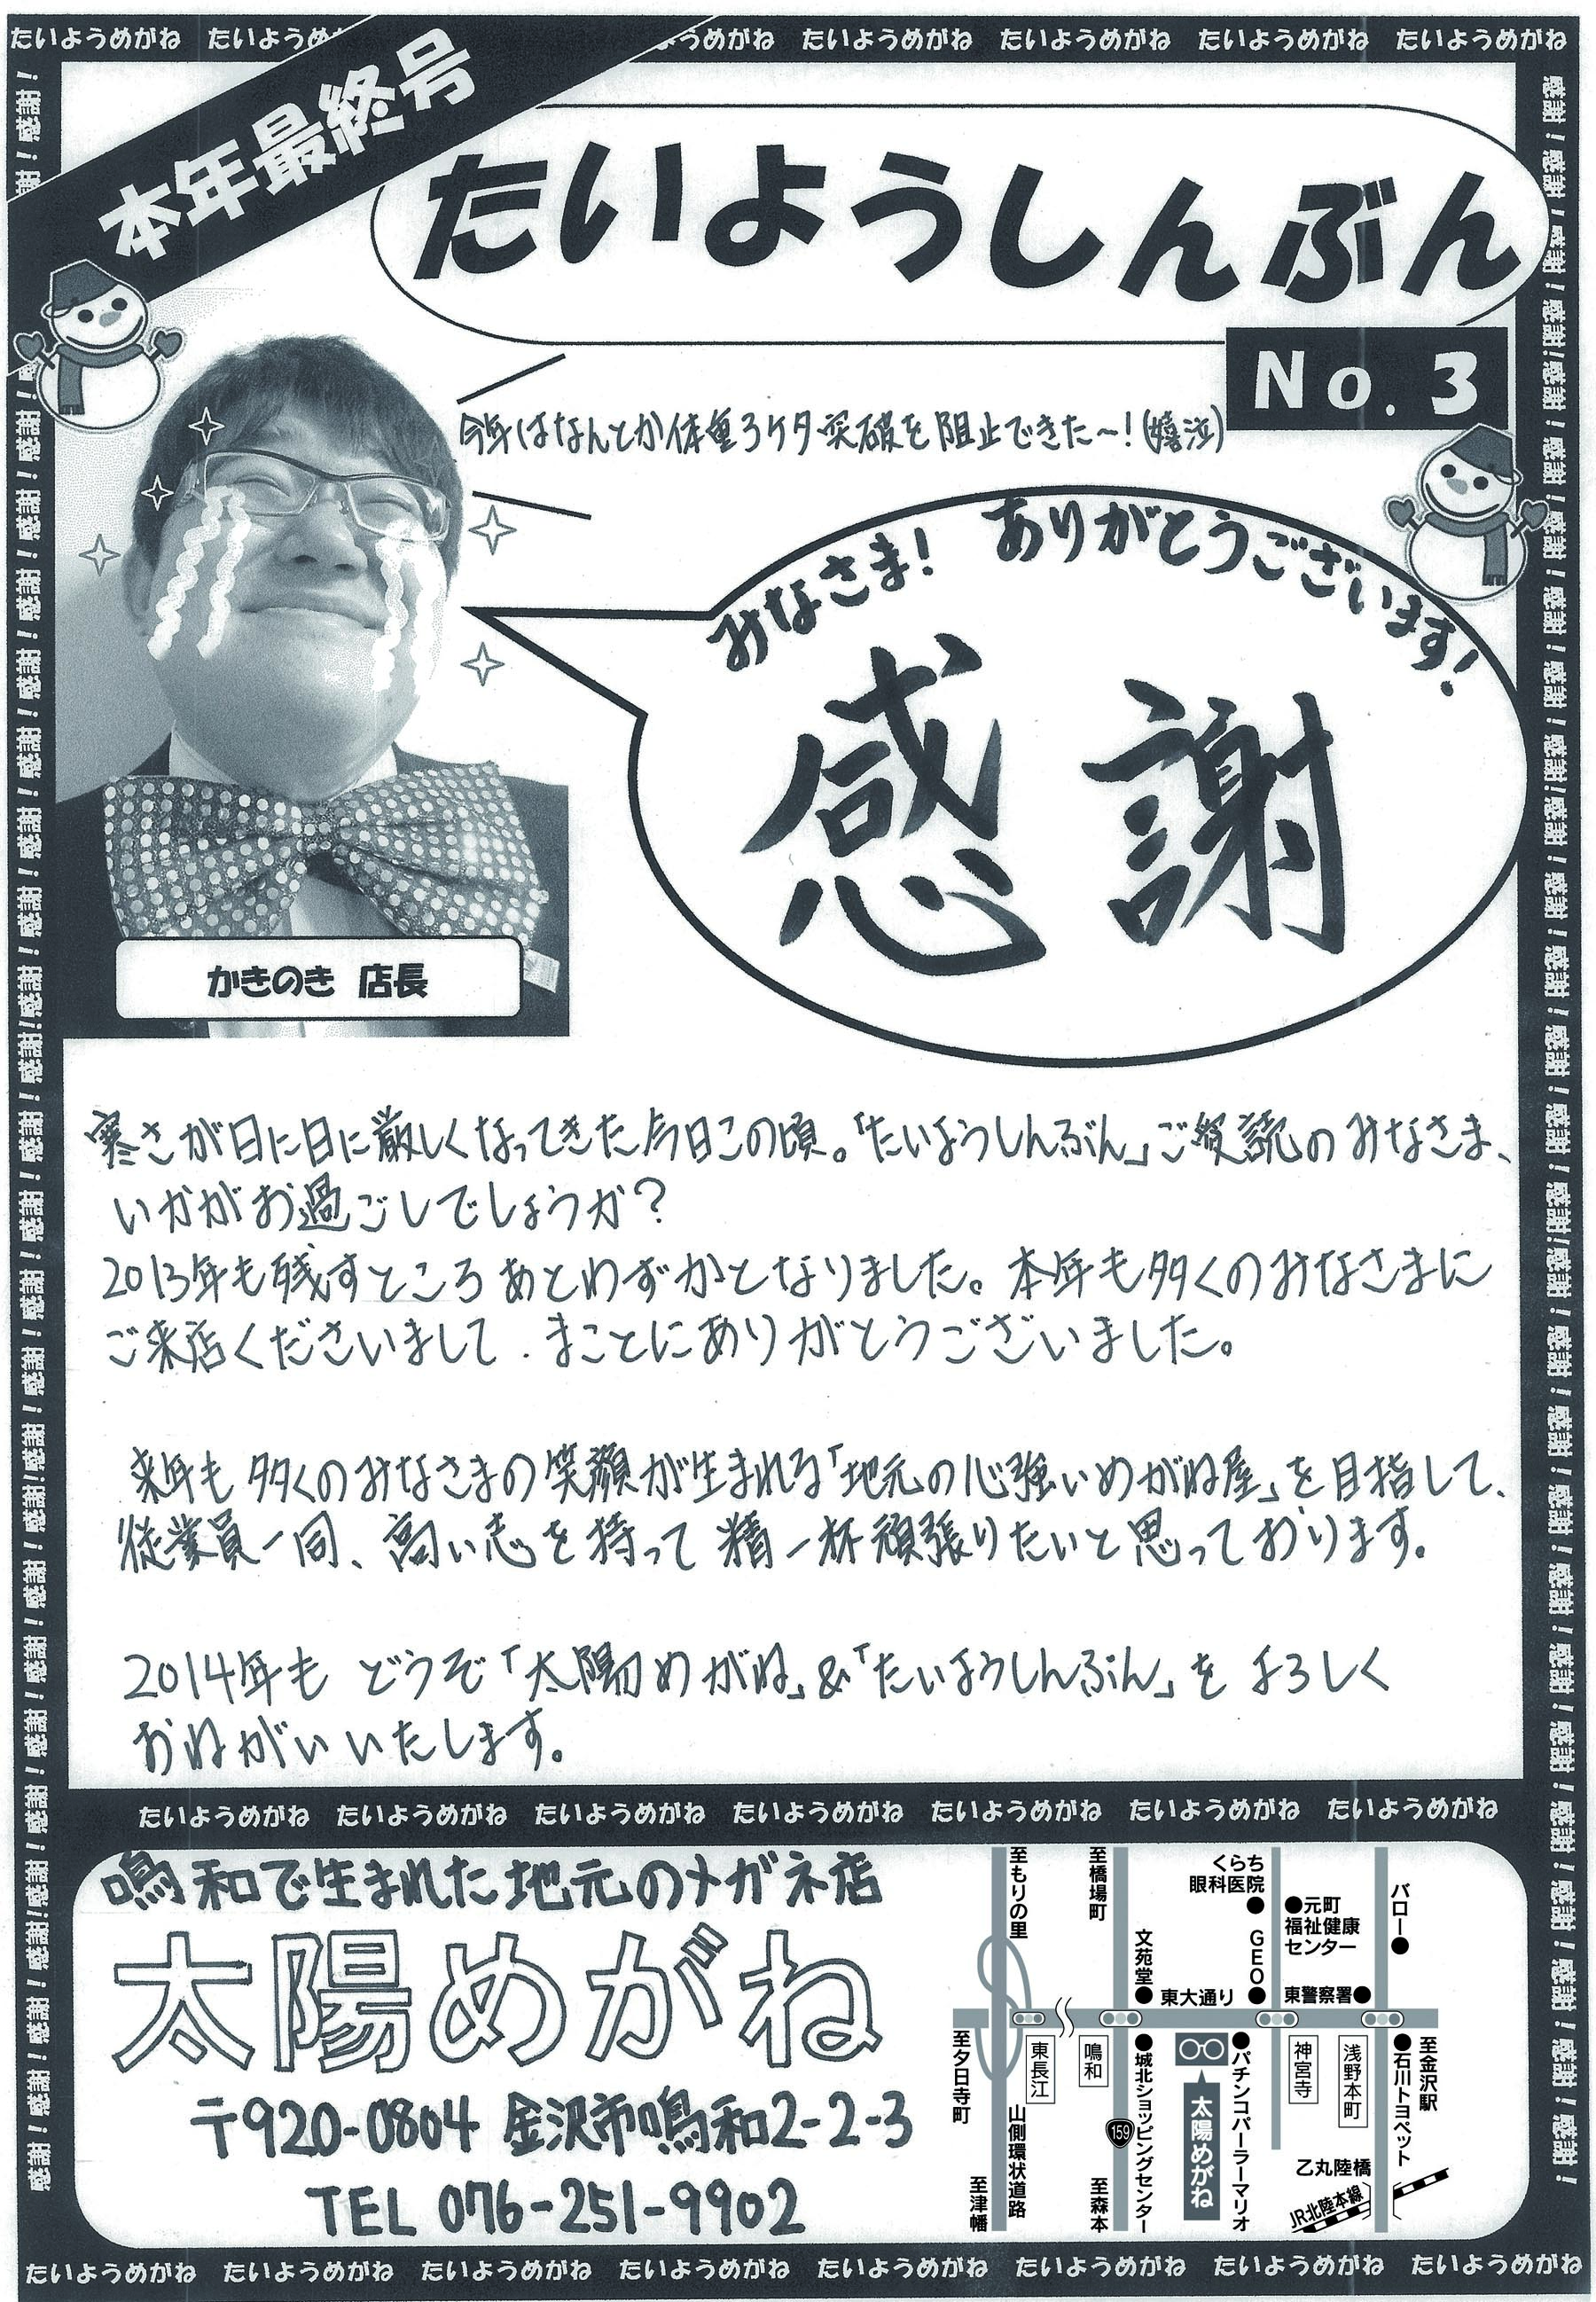 たいようめがね たいようめ ようめがね たいようめがね たいようめがね たいようめがね たいようめがね
本年最終号
たいようしんぶん
No. 3
今年はなんとか体重3ケタ突破を阻止できた〜!(嬉泣)
みなさま! ありがとうございます!
感謝
かきのき 店長
寒さが日に日に厳しくなってきた今日この頃。「たいようしんぶん」ご愛読のみなさま、
いかがお過ごしでしょうか?
2013年も残すところあとわずかとなりました。本年も多くのみなさまに
ご来店くださいまして、まことにありがとうございました。
来年も多くのみなさまの笑顔が生まれる「地元の心強いめがね屋」を目指して、
従業員一同、高い志を持って精一杯頑張りたいと思っております。
2014年も どうぞ「太陽めがね」&「たいようしんぶん」を よろしく
おねがいいたします。
たいようめがね たいようめがね たいようめがね たいようめがね たいようめがね たいようめがね たいようめがね
鳴和で生まれた地元のメガネ店
太陽めがね
〒920-0804 金沢市鳴和2-2-3
TEL 076-251-9902
至もりの里
至橋場町
くらち
眼科医院
元町
福祉健康
センター
バロー
文苑堂
GEO
東大通り
東警察署
至夕日寺町
東長江
鳴和
城北ショッピングセンター
パチンコパーラーマリオ
神宮寺
浅野本町
石川トヨペット
至金沢駅
山側環状道路
159
太陽めがね
至津幡
至森本
乙丸陸橋
JR北陸本線
たいようめがね たいようめがね たいようめがね たいようめがね たいようめがね たいようめがね たいようめがね たいようめがね
感謝!感謝!感謝!感謝!感謝!感謝!感謝!感謝!感謝!感謝!感謝!感謝!感謝!感謝!感謝!感謝!感謝!感謝!感謝!感謝!感謝!感謝!感謝!感謝!